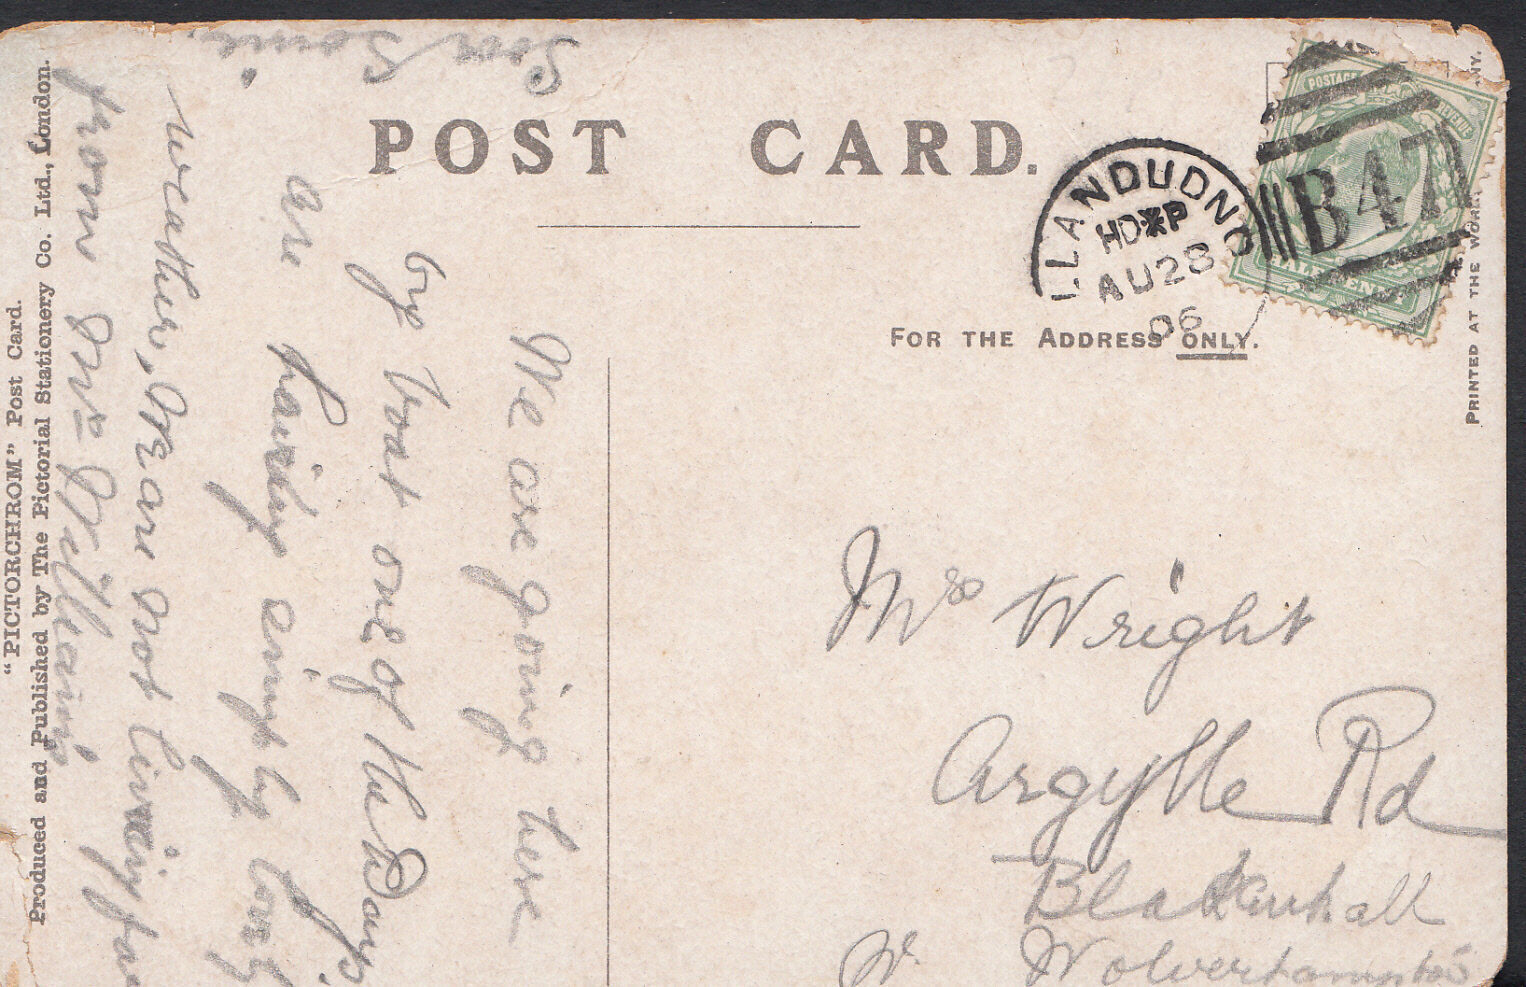 POST CARD.
FOR THE ADDRESS ONLY.
LLANDUDNO
HD*P
AU 28
06
B47
POSTAGE REVENUE
HALFPENNY
PRINTED AT THE
NY.
"PICTORCHROM" Post Card.
Produced and Published by The Pictorial Stationery Co. Ltd., London.
We are going here
by boat one of the Days.
are having simply lovely
weather, we are not living far
from Mrs Williams
Mrs Wright
Argylle Rd
Blakenhall
W. Wolverhampton